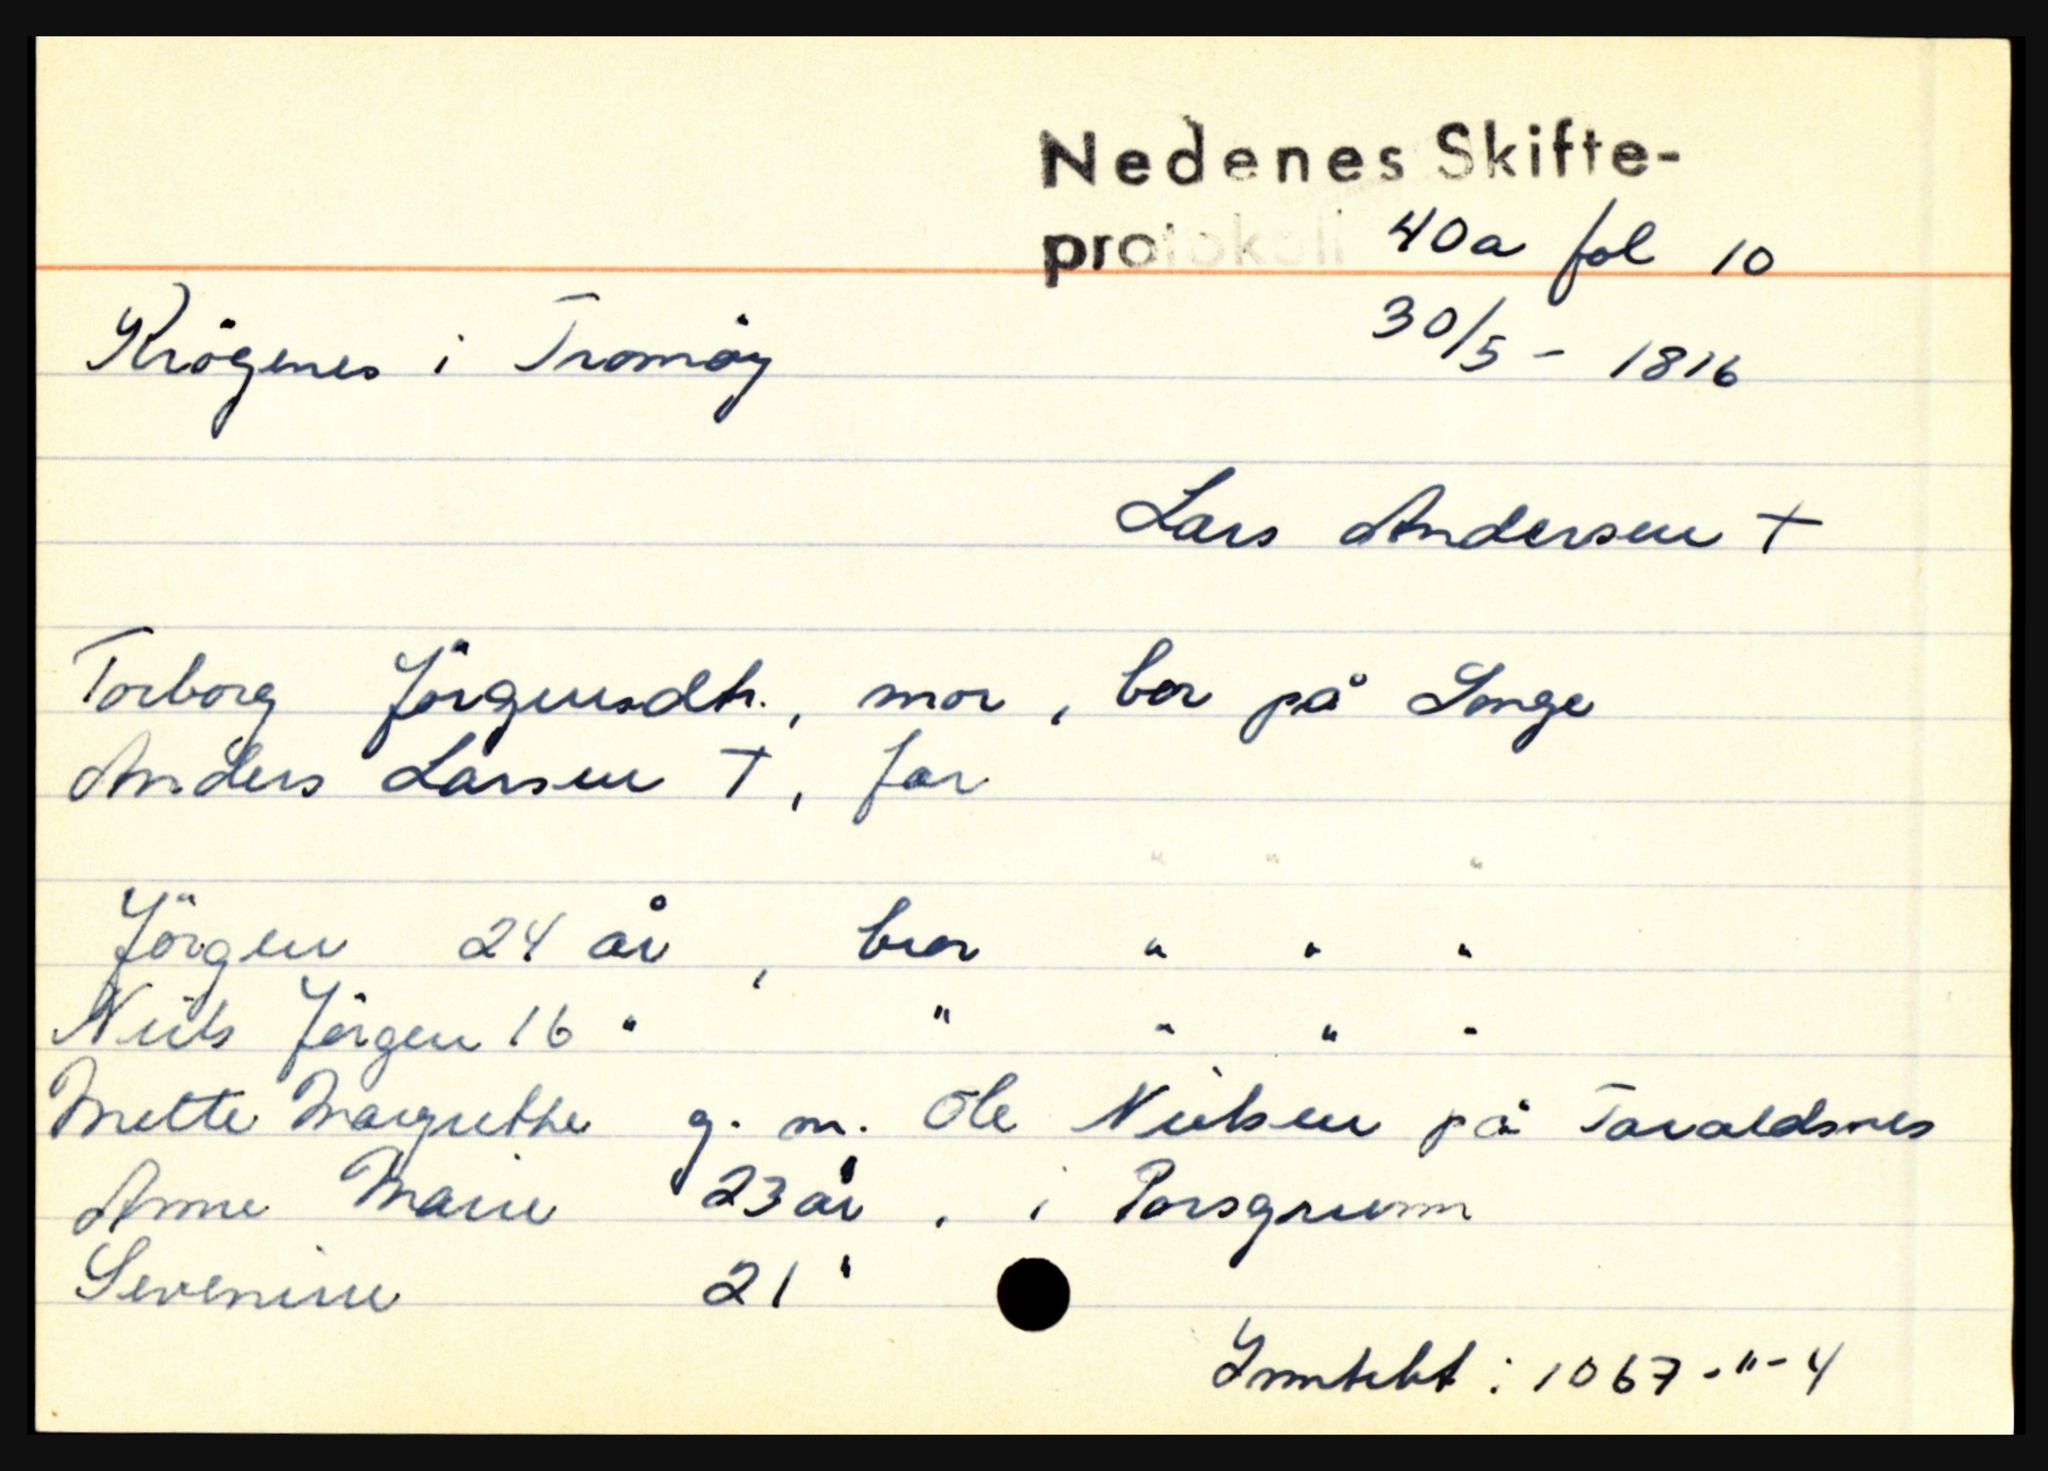 Nedenes Skifte-
protokoll 40a fol 10
Krögenes i Tromöy 30/5 - 1816
Lars Andersen †
Torborg Jörgensdtr., mor, bor på Songe
Anders Larsen †, far
" " "
Jörgen 24 år, bror " " "
Niels Jörgen 16 " " " " "
Mette Margrethe g. m. Ole Nielsen på Taraldsnes
Anne Marie 23 år, i Porsgrunn
Severine 21 "
Inntekt: 1067-"-4